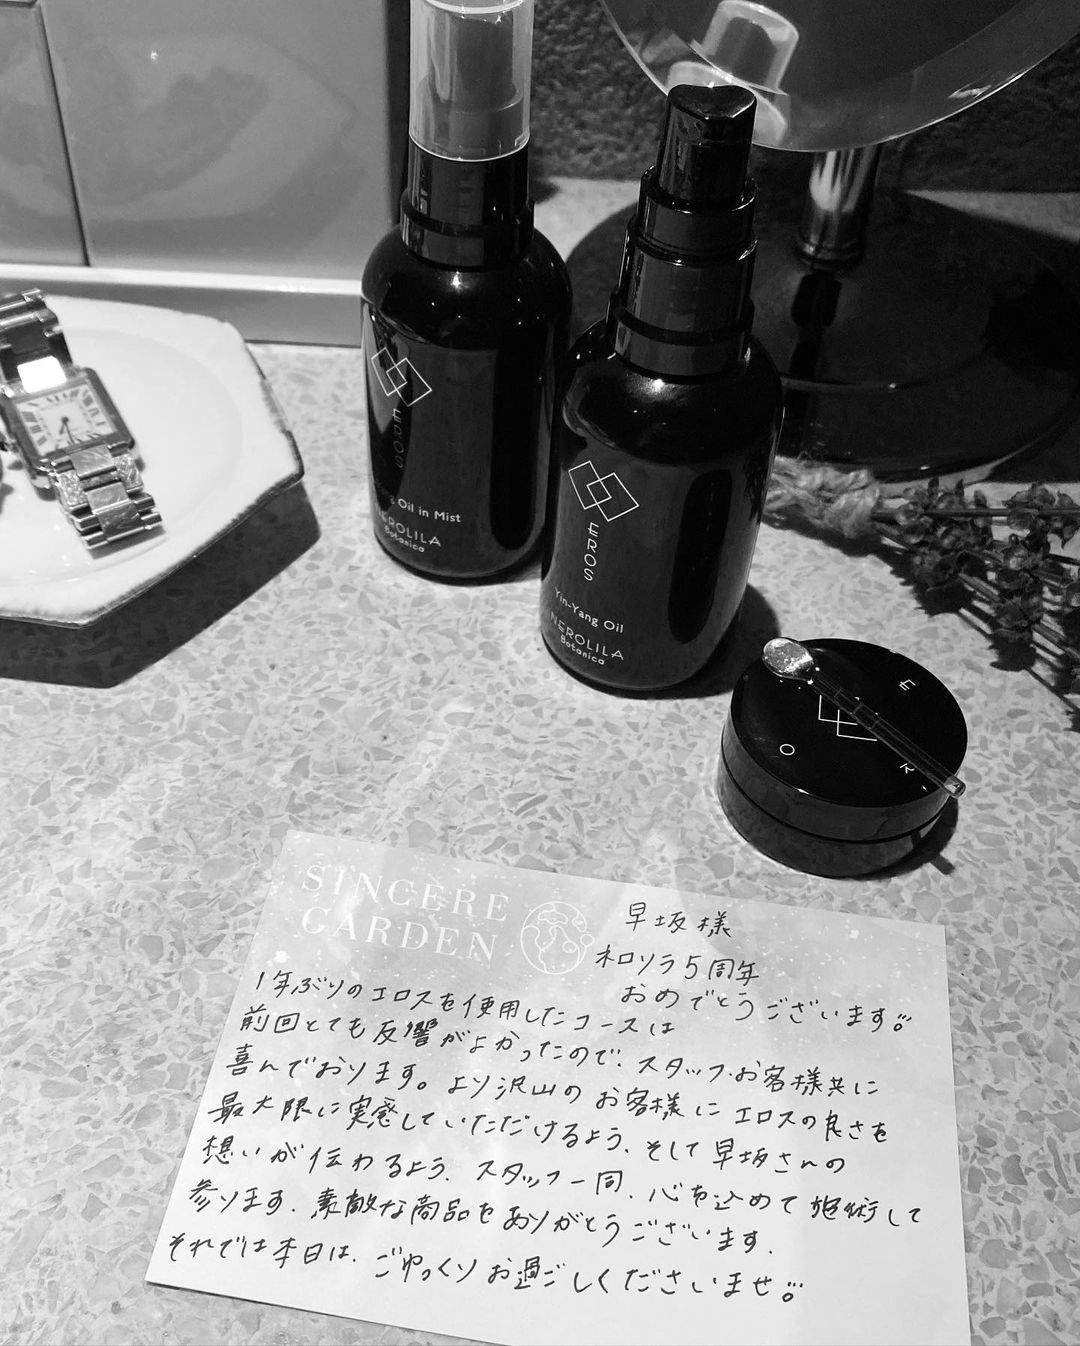 EROS
Oil in Mist
NEROLILA
Botanica
EROS
Yin-Yang Oil
NEROLILA
Botanica
E
O
R
SINCERE
GARDEN
早坂様
ネロリラ5周年
おめでとうございます
1年ぶりのエロスを使用したコースは
前回とても反響がよかったので、スタッフ・お客様共に
喜んでおります。より沢山のお客様にエロスの良さを
最大限に実感していただけるよう、そして早坂さんの
想いが伝わるよう、スタッフ一同、心を込めて施術して
参ります。素敵な商品をありがとうございます。
それでは本日は、ごゆっくりお過ごしくださいませ